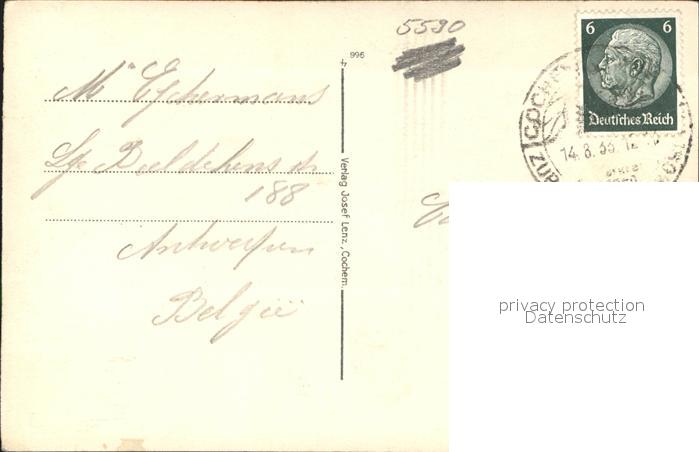 Mr Eyckermans
Lge Beeldekens str
188
Antwerpen
België
996
Verlag Josef Lenz, Cochem.
5590
6 6
Deutsches Reich
COCHEM
14.8.36.12
privacy protection
Datenschutz